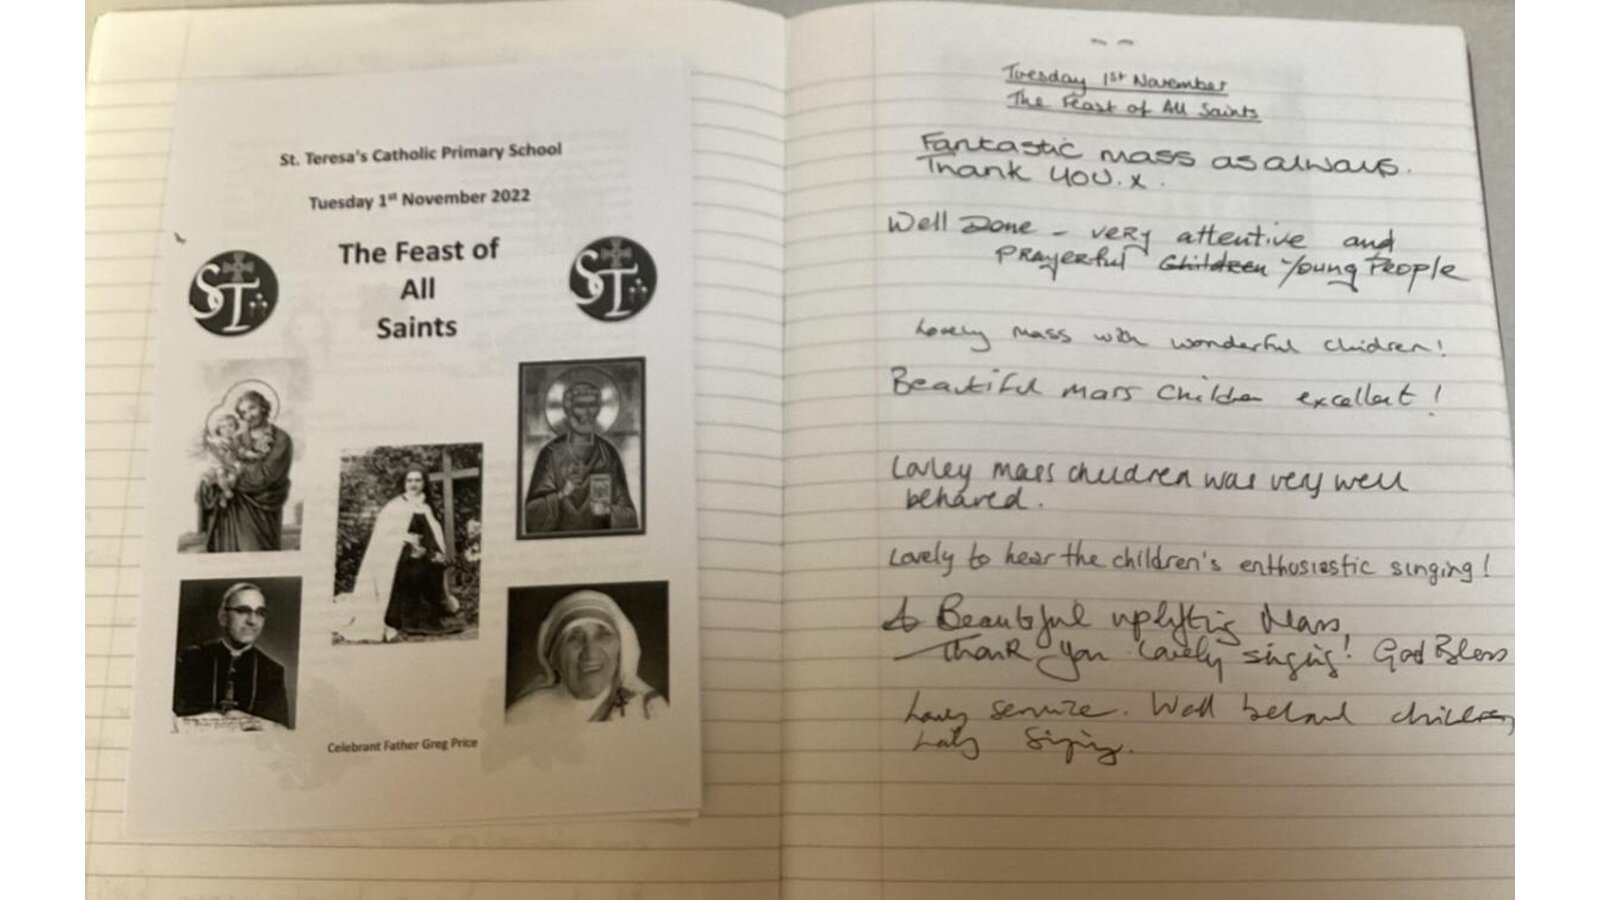 St. Teresa's Catholic Primary School
Tuesday 1st November 2022
The Feast of
All
Saints
ST
ST
Celebrant Father Greg Price
Tuesday 1st November
The Feast of All Saints
Fantastic mass as always.
Thank you. x.
Well Done - very attentive and
PRAYERful Children Young People
Lovely mass with wonderful children!
Beautiful mass Children excellent!
Lovley mass children was very well
behaved.
Lovely to hear the children's enthusiastic singing!
A Beautiful uplifting Mass
Thank you lovely singing! God Bless
Lovely service. Well behaved children
Lovely Singing.